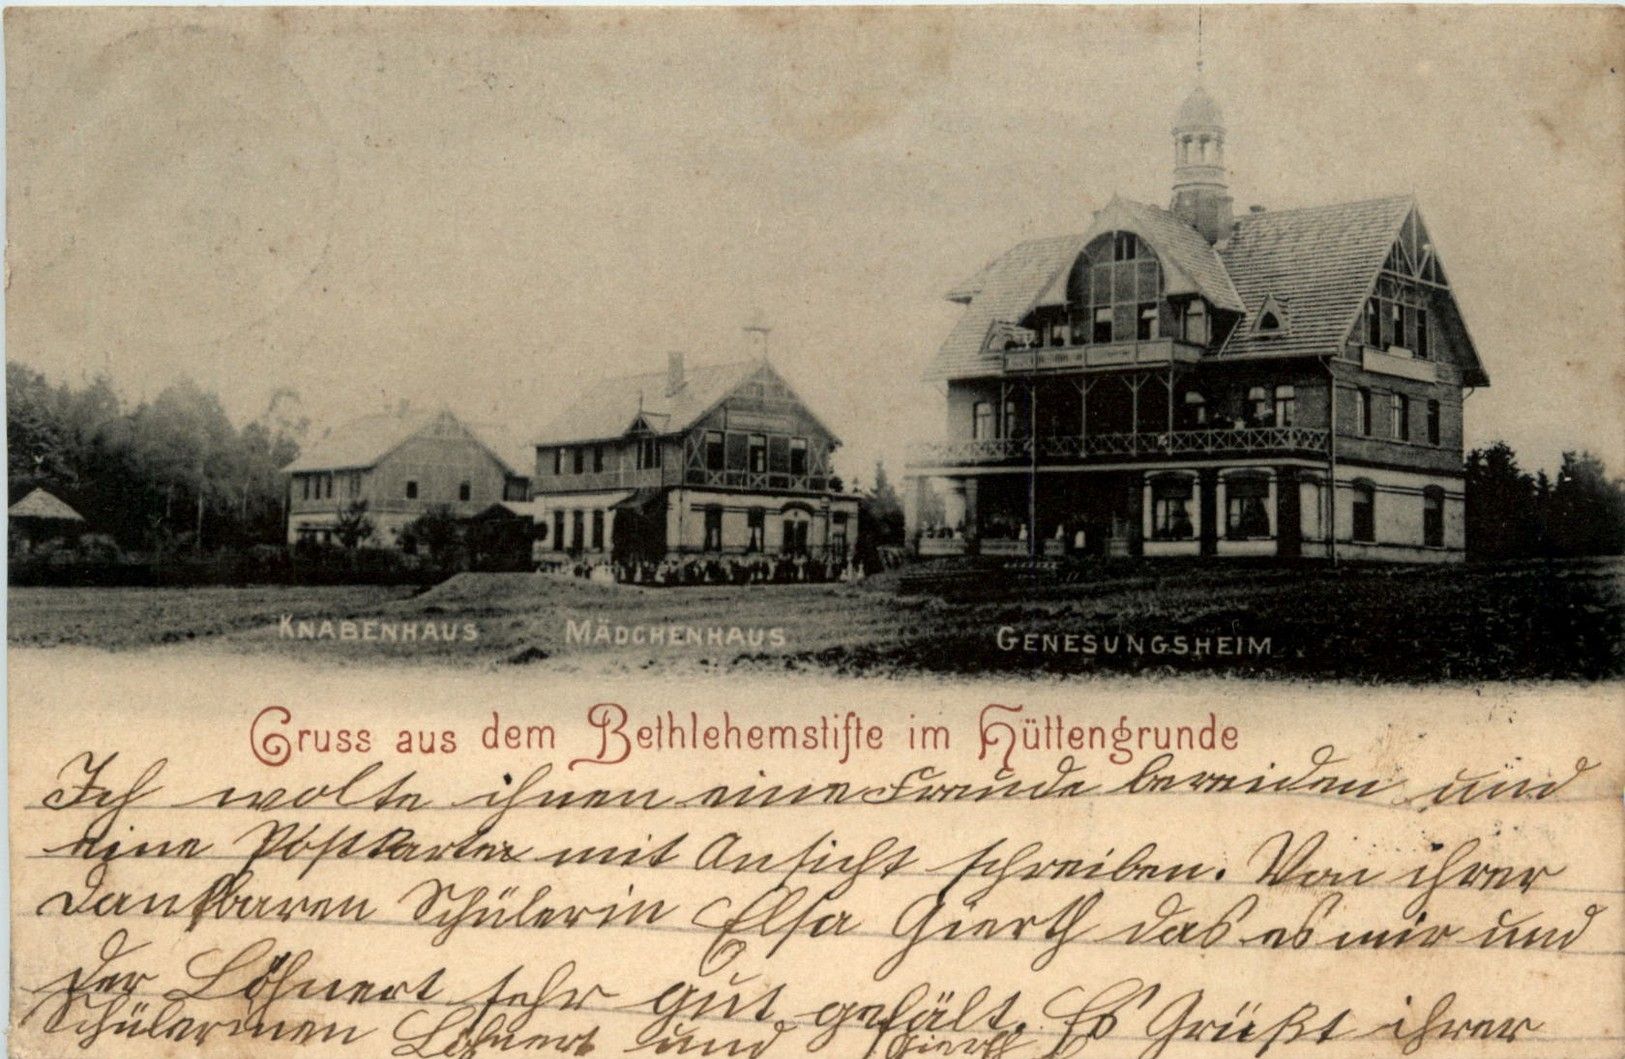 KNABENHAUS
MÄDCHENHAUS
GENESUNGSHEIM
Gruss aus dem Bethlehemstifte im Hüttengrunde
Ich wolte ihnen eine Freude bereiden und
eine Postkarte mit Ansicht schreiben. Von ihrer
dankbaren Schülerin Elsa Gierth das es mir und
der Löhnert sehr gut gefält. Es Grüßt ihrer
Schülerinen Löhnert und Gierth